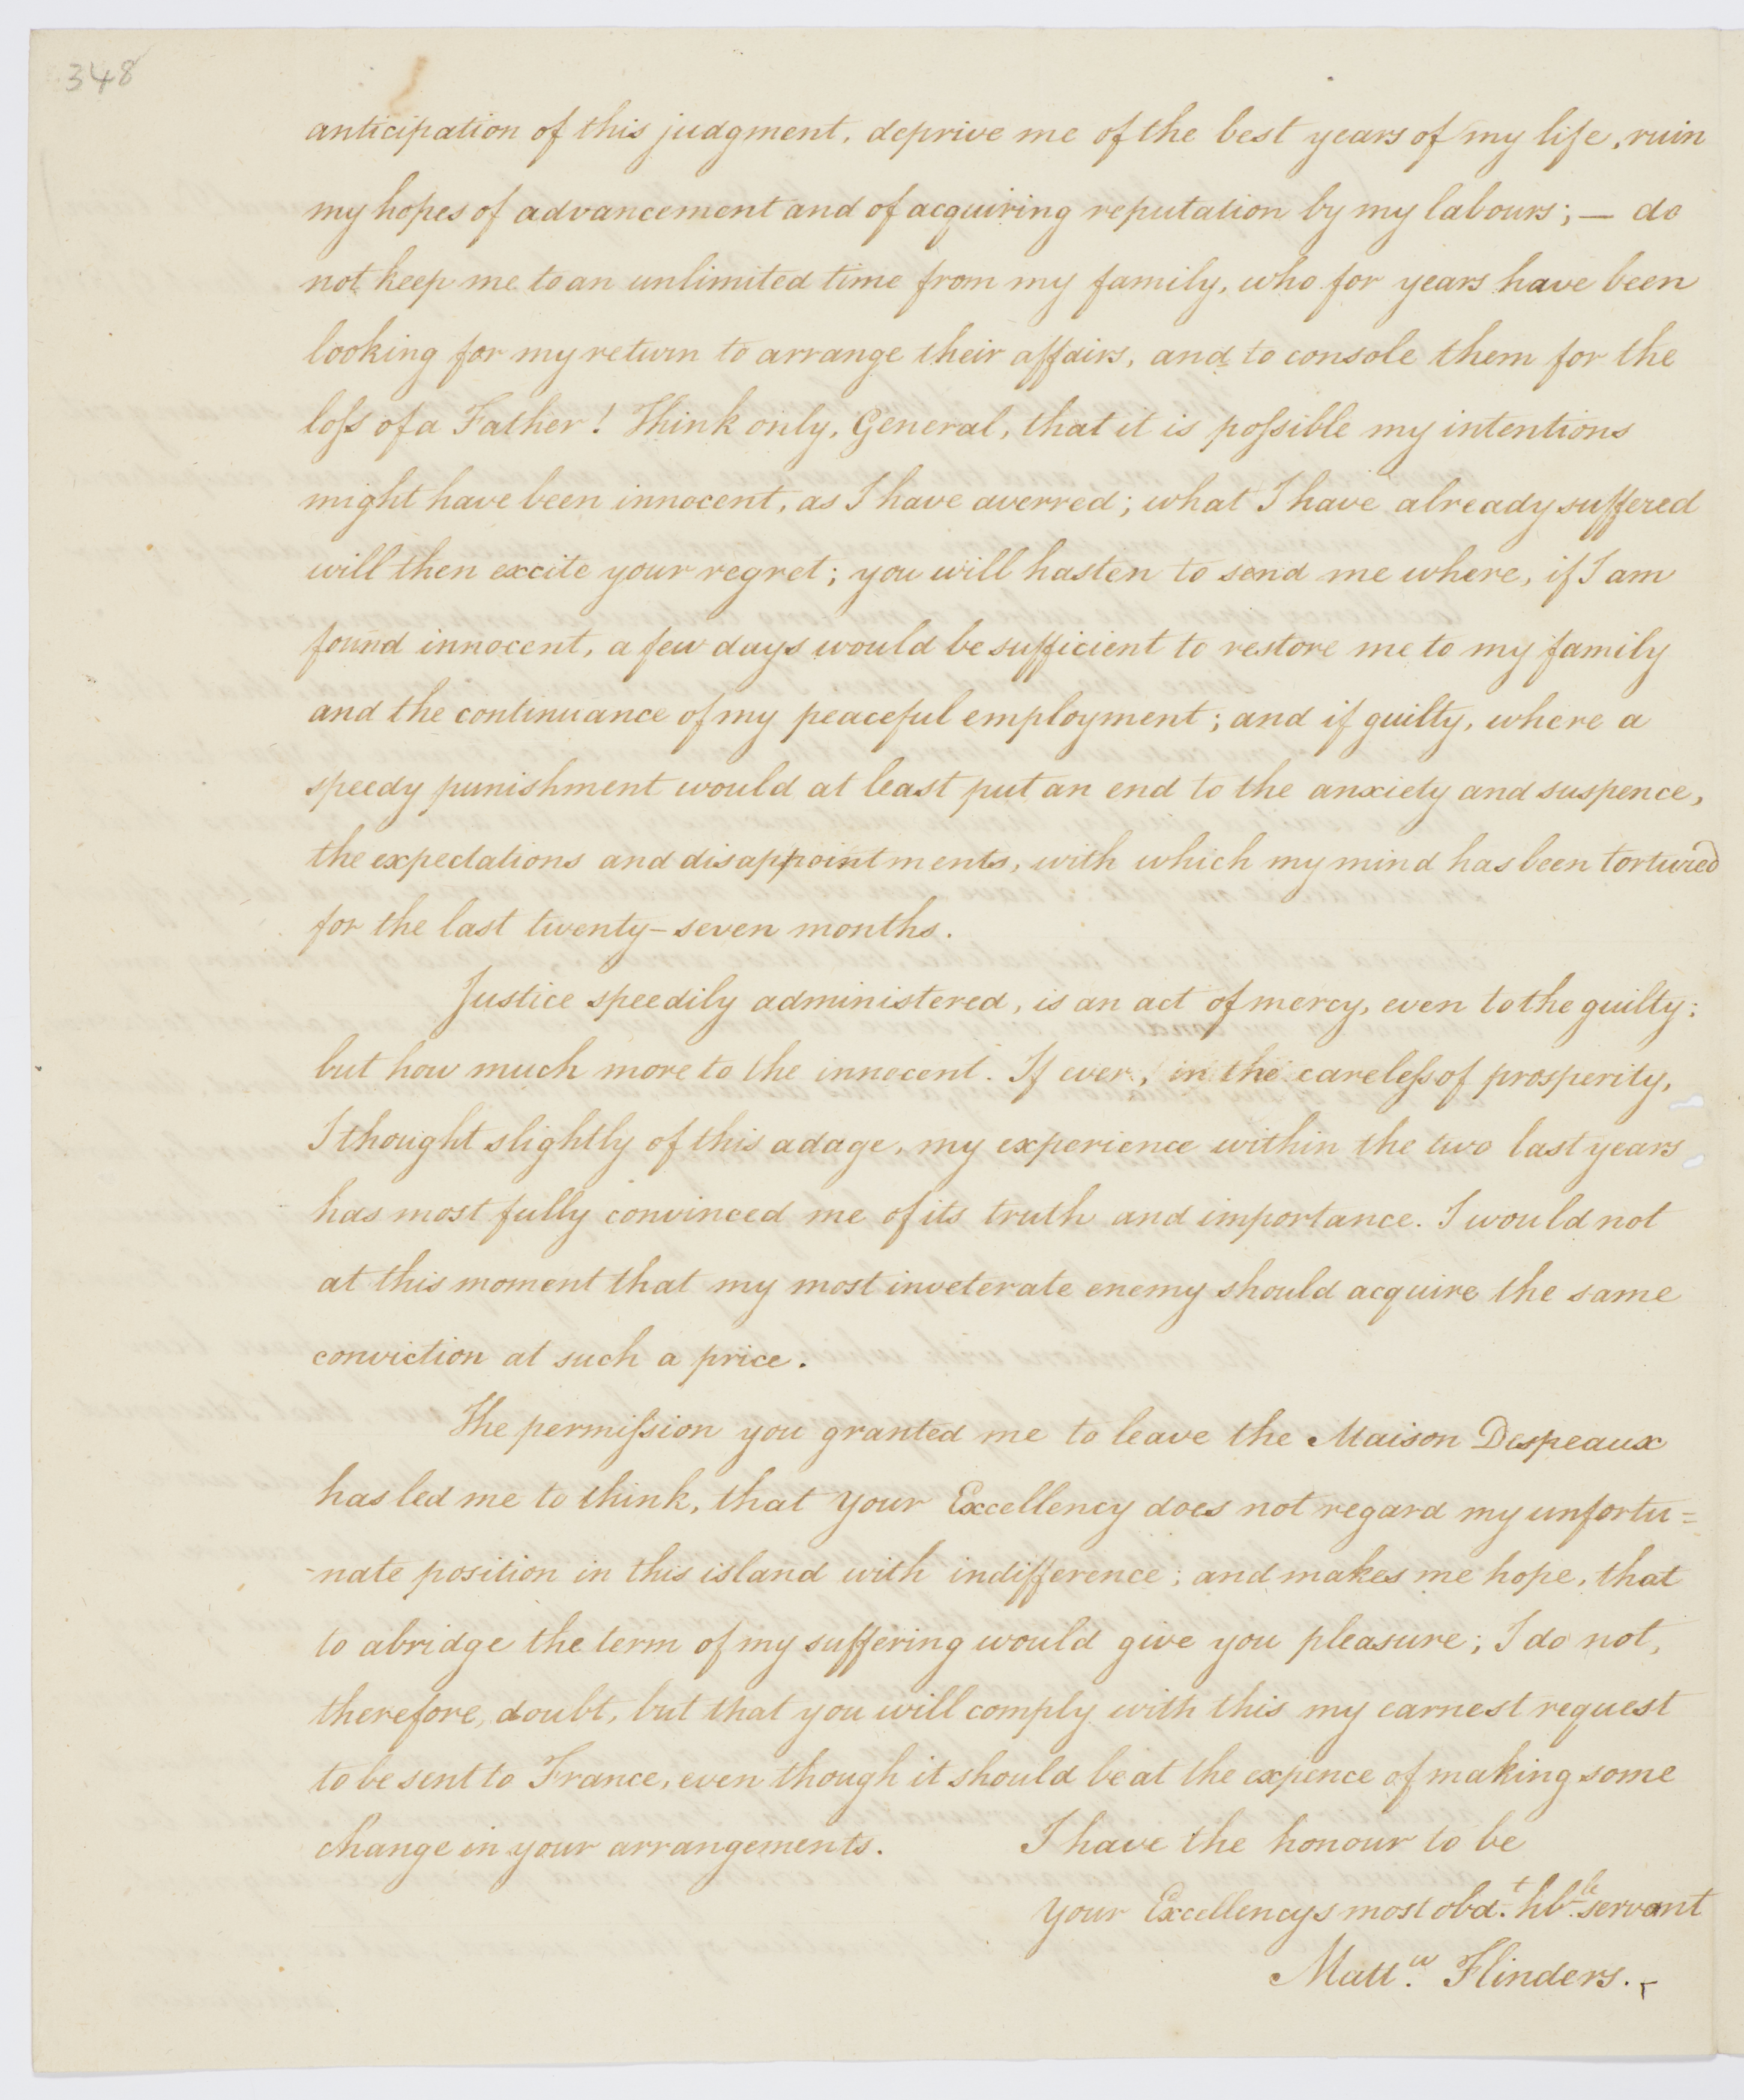 348
anticipation of this judgment, deprive me of the best years of my life, ruin
my hopes of advancement and of acquiring reputation by my labours; — do
not keep me to an unlimited time from my family, who for years have been
looking for my return to arrange their affairs, and to console them for the
loſs of a Father! Think only, General, that it is poſsible my intentions
might have been innocent, as I have averred; what I have already suffered
will then excite your regret; you will hasten to send me where, if I am
found innocent, a few days would be sufficient to restore me to my family
and the continuance of my peaceful employment; and if guilty, where a
speedy punishment would at least put an end to the anxiety and suspence,
the expectations and disappointments, with which my mind has been tortured
for the last twenty-seven months.
Justice speedily administered, is an act of mercy, even to the guilty:
but how much more to the innocent. If ever, in the careleſs of prosperity,
I thought slightly of this adage, my experience within the two last years
has most fully convinced me of its truth and importance. I would not
at this moment that my most inveterate enemy should acquire the same
conviction at such a price.
The permiſsion you granted me to leave the Maison Despeaux
has led me to think, that Your Excellency does not regard my unfortu=
-nate position in this island with indifference; and makes me hope, that
to abridge the term of my suffering would give you pleasure; I do not,
therefore, doubt, but that you will comply with this my earnest request
to be sent to France, even though it should be at the expence of making some
change in your arrangements. I have the honour to be
Your Excellencys most obd.t hb.le servant
Matt.w Flinders.